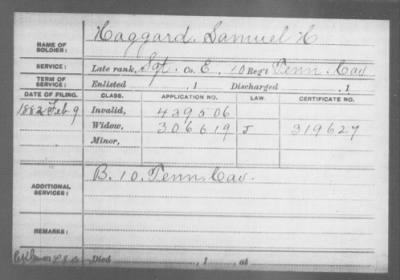 NAME OF SOLDIER: Haggard, Samuel H
SERVICE: Late rank, Sgt. Co. E, 10 Reg't Tenn Cav
TERM OF SERVICE: Enlisted , 1 Discharged , 1
DATE OF FILING. CLASS. APPLICATION NO. LAW. CERTIFICATE NO.
1882 Feb 9 Invalid, 439506
Widow, 306619 J 319627
Minor,
ADDITIONAL SERVICES: B. 10. Tenn. Cav.
REMARKS:
Died , 1 , at